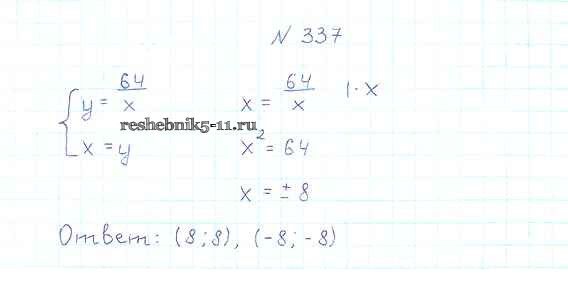 N 337
{ y = 64/x    x = 64/x  | · x
reshebnik5-11.ru
x = y    x² = 64
x = ± 8
Ответ: (8;8), (-8;-8)